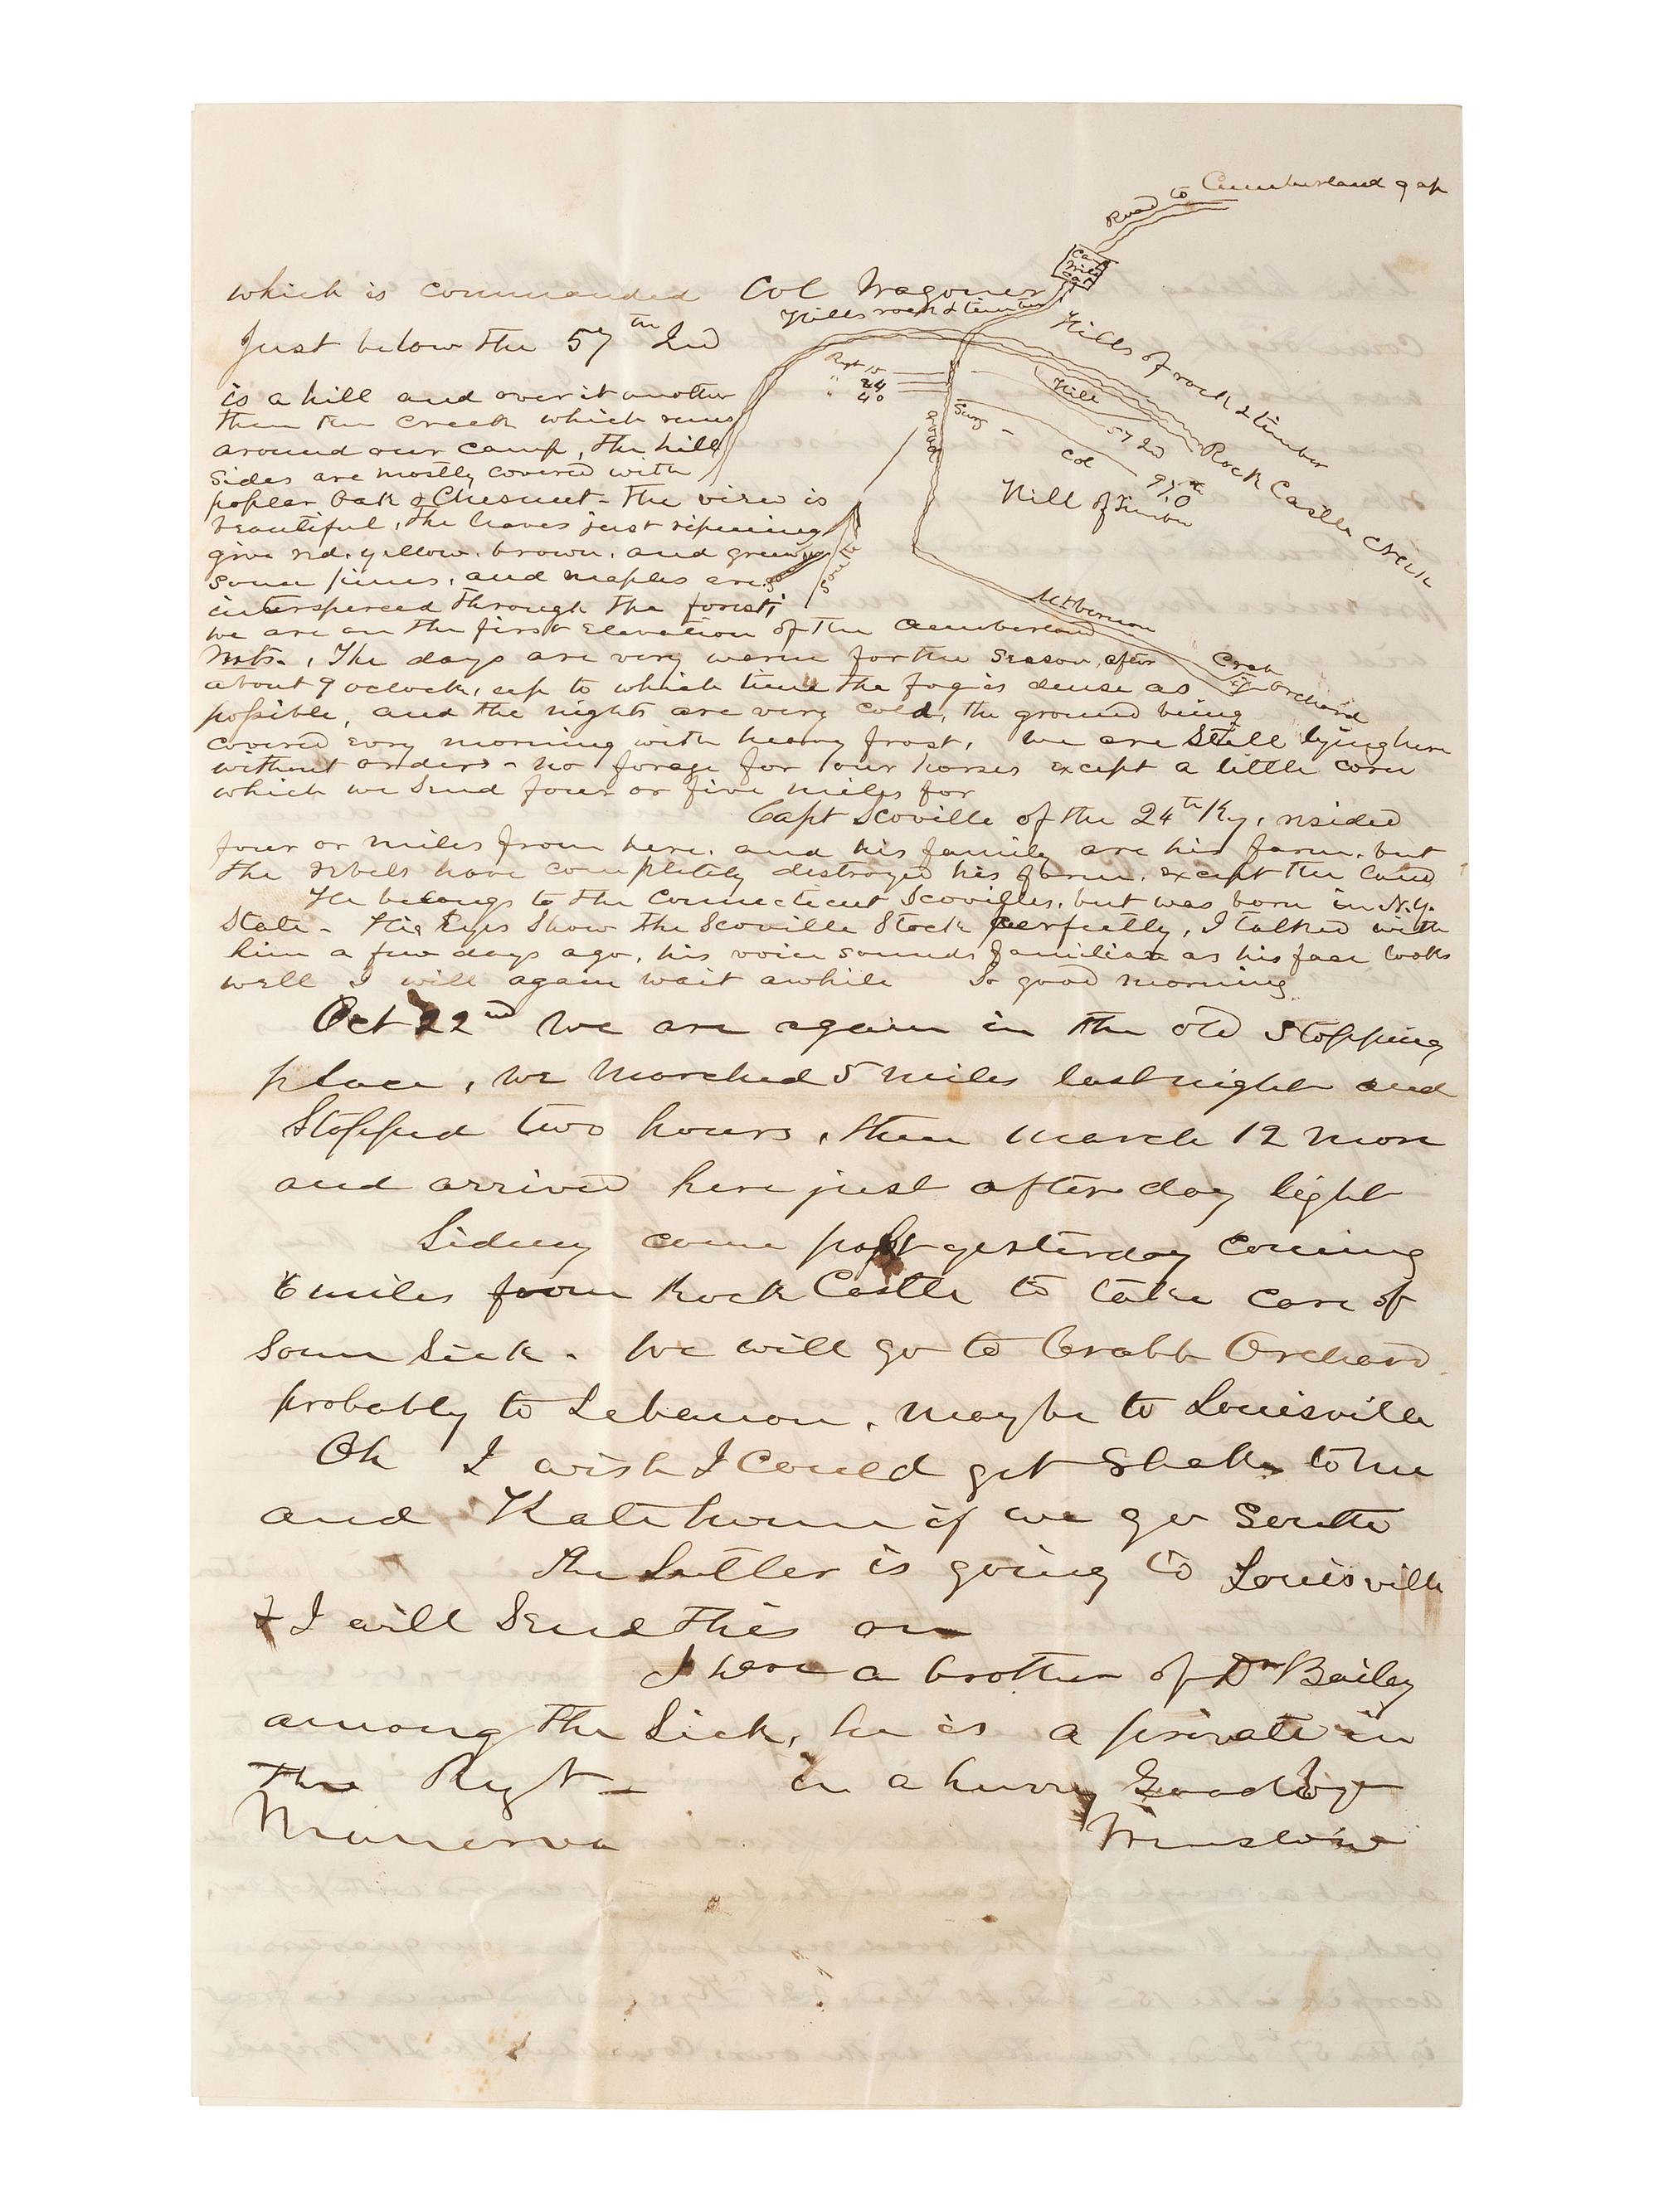 Road to Cumberland gap
which is commanded Col Wagoner
Hills rock & timber
Just below the 57th Ind
is a hill and over it another
then the creek which runs
around our camp, the hill
sides are mostly covered with
popler Oak & Chesnut - The view is
beautiful, the leaves just ripening
give red, yellow, brown, and green
some pines, and maples are
interspersed through the forest,
we are on the first elevation of the Cumberland
Mts., The days are very warm for the season, after
about 9 oclock, up to which time the fog is dense as
possible, and the nights are very cold, the ground being
covered evry morning with heavy frost, We are still lying here
without orders - no forage for our horses except a little corn
which we send four or five miles for
Regt 15
" 24
" 40
road
Surg
Hill
57 Ind
Col
97 O
Hill of timber
Hills of rock & timber
Rock Castle Creek
South
Mt Vernon
Crab Orchard
Capt Scoville of the 24th Ky, resided
four or miles from here, and his family are his farm, but
the rebels have completely destroyed his farm, except the land
He belongs to the Connecticut Scovilles, but was born in N.Y.
State - His Eyes Show the Scoville Stock perfectly, I talked with
him a few days ago, his voice sounds familiar as his face looks
well I will again wait awhile So good morning
Oct 22nd We are again in the old stopping
place, we marched 5 miles last night and
Stopped two hours, then march 12 more
and arrived here just after day light
Sidney came past yesterday coming
6 miles from Rock Castle to take care of
some sick - We will go to Crabb Orchard
probably to Lebanon, maybe to Louisville
Oh I wish I could get to me
and Kate home if we go South
The Sutler is going to Louisville
& I will Send this on
I have a brother of Dr Bailey
among the Sick, he is a private in
the Regt - in a hurry Good bye
Minerva Winslow